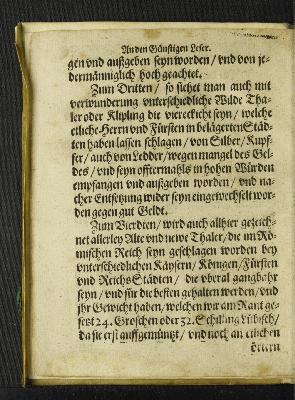 An den Günstigen Leser.
gen vnd außgeben seyn worden / vnd von je-
dermänniglich hoch geachtet.
Zum Dritten / so siehet man auch mit
verwunderung vnterschiedliche Wilde Tha-
ler oder Klipling die viereckicht seyn / welche
etliche Herrn vnd Fürsten in belägerten Städ-
ten haben lassen schlagen / von Silber / Kupf-
fer / auch von Ledder / wegen mangel des Gel-
des / vnd seyn offtermahls in hohen Würden
empfangen vnd außgeben worden / vnd na-
cher Entsetzung wider seyn eingewechselt wor-
den gegen gut Geldt.
Zum Vierdten / wird auch allhier gezeich-
net allerley Alte vnd newe Thaler / die im Rö-
mischen Reich seyn geschlagen worden bey
vnterschiedlichen Käysern / Königen / Fürsten
vnd Reichs Städten / die vberal gangbahr
seyn / vnd für die besten gehalten werden / vnd
jhr Gewicht haben / welchen wir am Rant ge-
setzt 24. Groschen oder 32. Schilling Lübisch /
da sie erst auffgemüntzt / vnd noch an etlichen
örtern